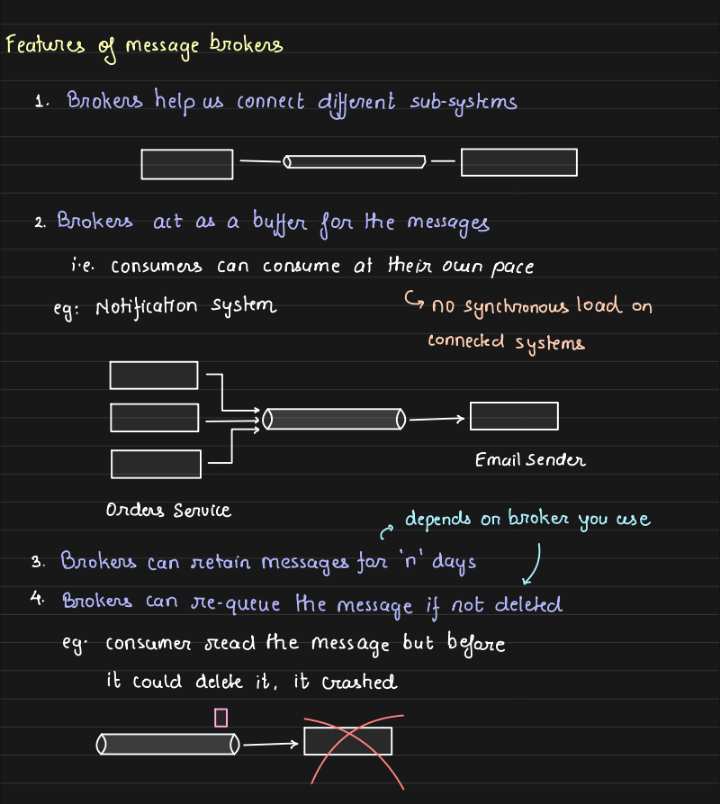 Features of message brokers
1. Brokers help us connect different sub-systems
2. Brokers act as a buffer for the messages
i.e. consumers can consume at their own pace
eg: Notification System
↳ no synchronous load on
connected systems
Email Sender
Orders Service
depends on broker you use
3. Brokers can retain messages for 'n' days
4. Brokers can re-queue the message if not deleted
eg. consumer read the message but before
it could delete it, it crashed